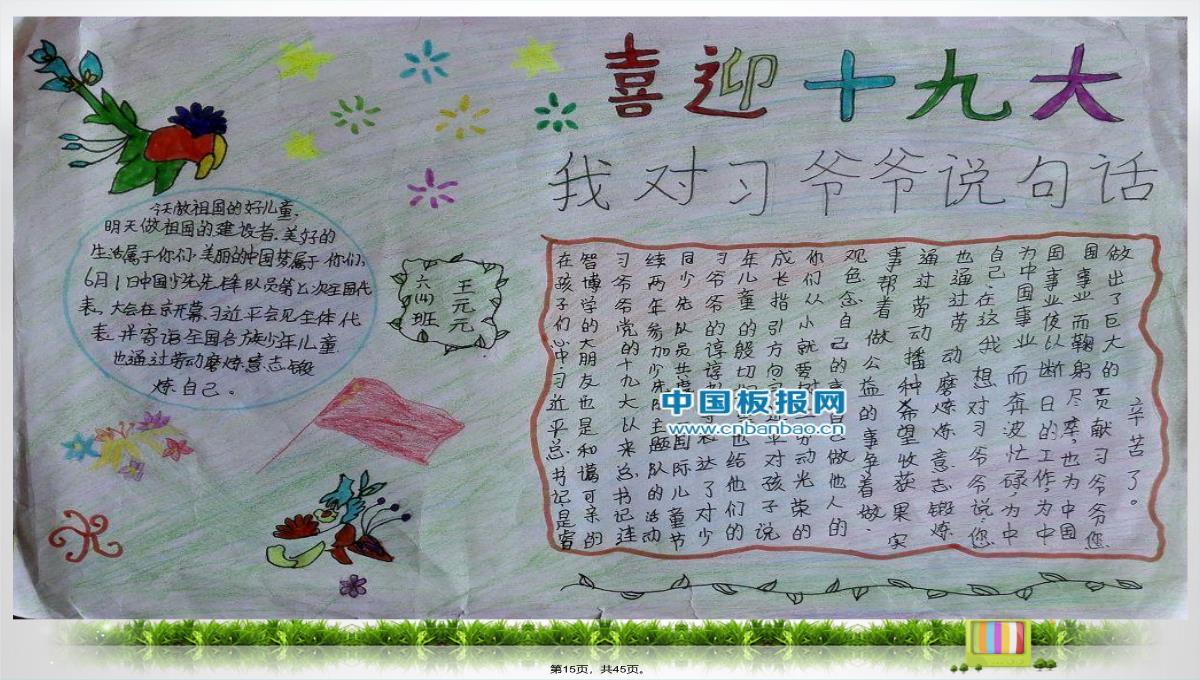 喜迎十九大
我对习爷爷说句话
今天做祖国的好儿童,
明天做祖国的建设者.美好的
生活属于你们.美丽的中国梦属于你们,
6月1日中国少先先锋队员第七次全国代
表。大会在京开幕.习近平会见全体代
表.并寄语全国各族少年儿童
也通过劳动磨炼意志锻
炼自己。
六(4)班
王元元
在孩子们心中,习近平总书记是睿
智博学的大朋友也是和蔼可亲的
习爷爷党的十九大以来总书记连
续两年参加少先队主题队的活动
同少先队员共度国际儿童节
习爷爷的谆谆表达了对少
年儿童的殷切也给他们的
成长指引方向习近平对孩子说
你们从小就要劳动光荣的
观念自己的事自己做他人的
事帮着做公益的事争着做.
通过劳动播种希望收获果实
也通过劳动磨炼意志锻炼
自己.在这我想对习爷爷说:您
为中国事业而奔波忙碌,为中
国事业俊以断日的工作,为中
国事业而鞠躬尽瘁,也为中国
做出了巨大的贡献习爷爷您
辛苦了。
中国板报网
www.cnbanbao.cn
第15页，共45页。